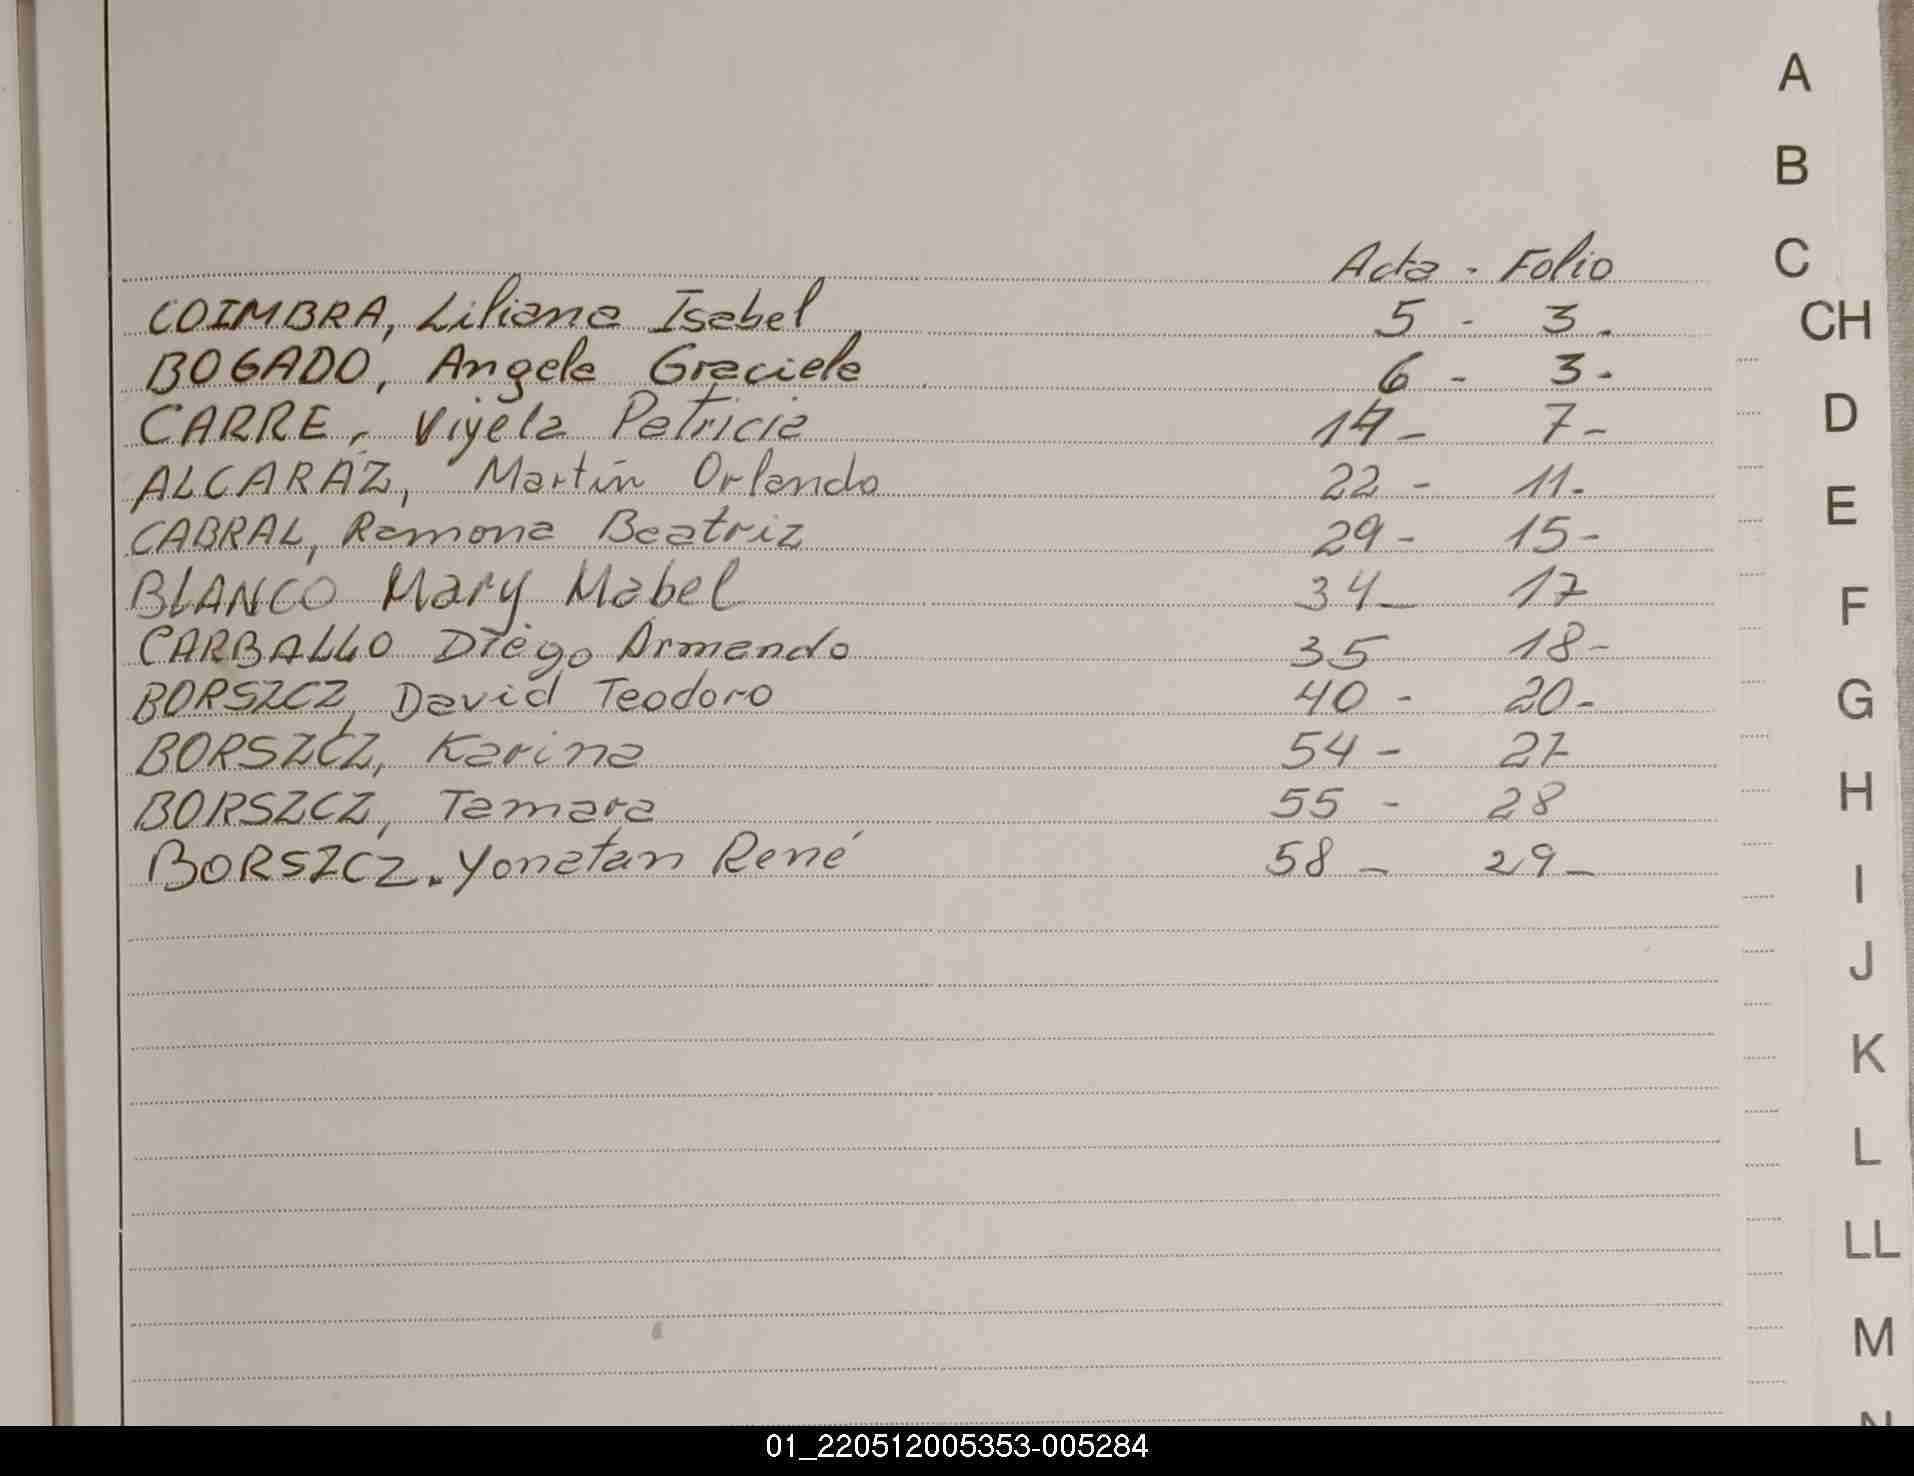 Acta - Folio
COIMBRA, Liliana Isabel 5 - 3.
BOGADO, Angela Graciela 6 - 3.
CARRE, Viyela Patricia 14 - 7 -
ALCARÁZ, Martín Orlando 22 - 11.
CABRAL, Ramona Beatriz 29 - 15 -
BLANCO Mary Mabel 34 - 17
CARBALLO Diego Armando 35 18 -
BORSZCZ, David Teodoro 40 - 20 -
BORSZCZ, Karina 54 - 27
BORSZCZ, Tamara 55 - 28
BORSZCZ. Yonatan René 58 - 29 -
A
B
C
CH
D
E
F
G
H
I
J
K
L
LL
M
N
01_220512005353-005284